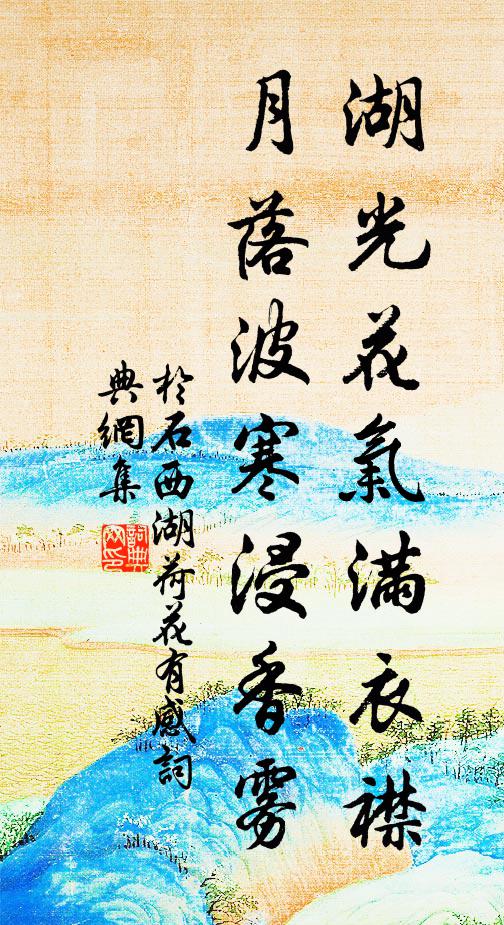 湖光花氣滿衣襟
月落波寒浸香霧
於石西湖荷花有感詞
典網集